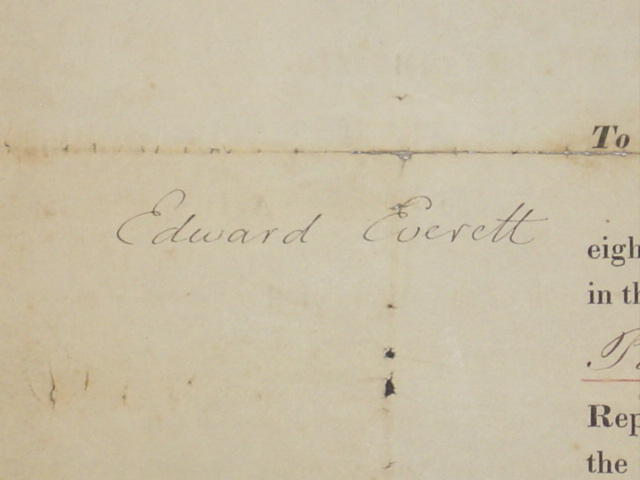 To
Edward Everett
eigh
in th
Rep
the